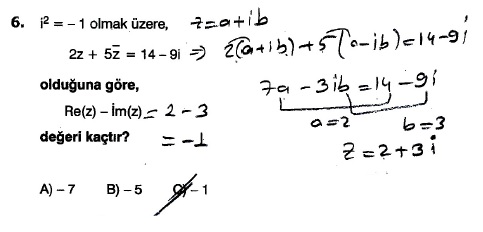 6. i² = – 1 olmak üzere, z=a+ib
2z + 5z̄ = 14 – 9i ⇒ 2(a+ib)+5(a-ib)=14-9i
olduğuna göre, 7a - 3ib = 14 - 9i
Re(z) – İm(z) = 2 - 3 a=2 b=3
değeri kaçtır? = -1 z=2+3i
A) – 7 B) – 5 C) – 1